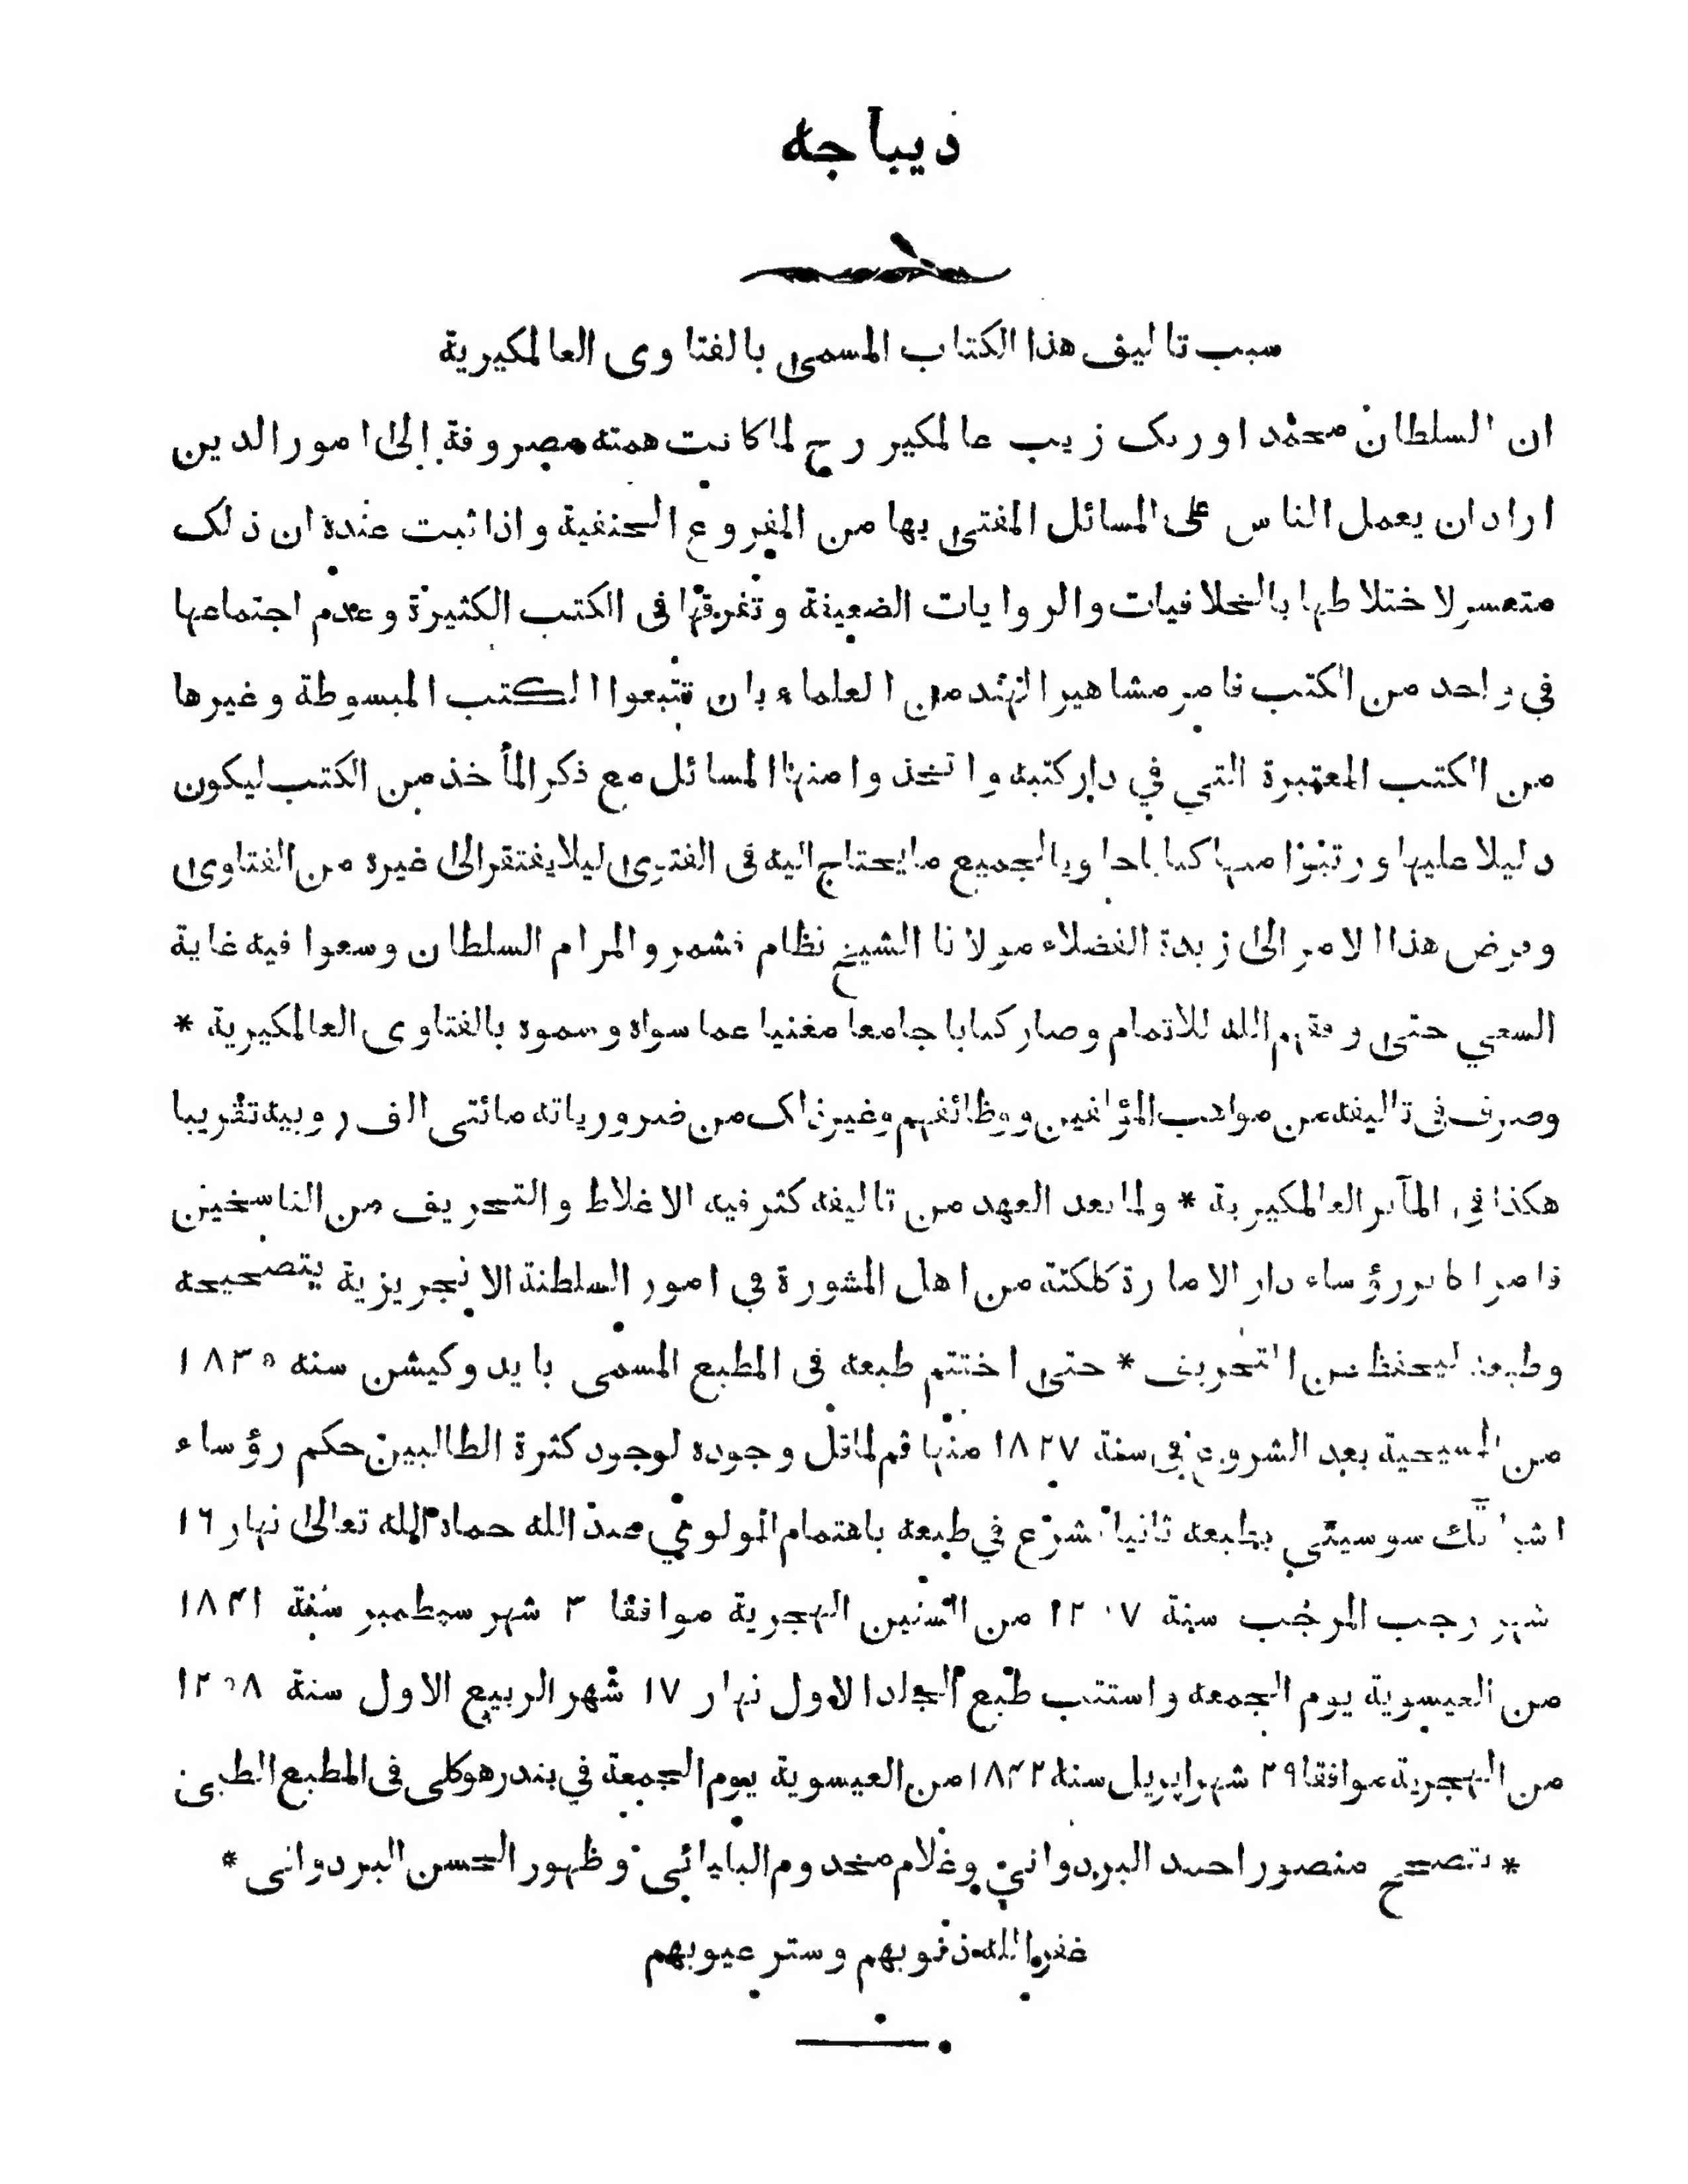 ديباجه
سبب تاليف هذا الكتاب المسمى بالفتاوى العالمكيرية
ان السلطان محمد اورنک زيب عالمكير رح لما كانت همته مصروفة الى امور الدين
اراد ان يعمل الناس على المسائل المفتى بها من الفروع الحنفية واذا ثبت عنده ان ذلک
متعسر لاختلاطها بالخلافيات والروايات الضعيفة وتفرقها فى الكتب الكثيرة وعدم اجتماعها
في واحد من الكتب فامر مشاهير الهند من العلماء بان تتبعوا الكتب المبسوطة وغيرها
من الكتب المعتبرة التي في دار كتبه واتخذوا منها المسائل مع ذكر المأخذ من الكتب ليكون
دليلا عليها ورتبوا منها كتابا حاويا لجميع ما يحتاج اليه فى الفتوى ليلا يفتقر الى غيره من الفتاوى
وفوض هذا الامر الى زبدة الفضلاء مولانا الشيخ نظام فشمروا لمرام السلطان وسعوا فيه غاية
السعي حتى وفقهم الله للاتمام وصار كتابا جامعا مغنيا عما سواه وسموه بالفتاوى العالمكيرية *
وصرف فى تاليفه من مواهب المؤلفين ووظائفهم وغير ذلک من ضرورياته مائتى الف روبيه تقريبا
هكذا فى المآثر العالمكيرية * ولما بعد العهد من تاليفه كثر فيه الاغلاط والتحريف من الناسخين
فامر اكابر رؤساء دار الامارة كلكتة من اهل المشورة في امور السلطنة الانجريزية بتصحيحه
وطبعه ليحفظ من التحريف * حتى اختتم طبعه فى المطبع المسمى بايدوكيشن سنه ١٨٣٥
من المسيحية بعد الشروع في سنة ١٨٢٧ منها ثم لما قل وجوده لوجود كثرة الطالبين حكم رؤساء
اشياتك سوسيتي بطبعه ثانيا فشرع في طبعه باهتمام المولوي عبد الله حماه الله تعالى نهار ١٦
شهر رجب المرجب سنة ١٢٥٧ من السنين الهجرية موافقا ٣ شهر سپطمبر سنة ١٨٤١
من العيسوية يوم الجمعه واستتب طبع الجلد الاول نهار ١٧ شهر الربيع الاول سنة ١٢٥٨
من الهجرية موافقا ٢٩ شهر اپريل سنه ١٨٤٢ من العيسوية يوم الجمعة في بندر هوكلى فى المطبع الطبى
* بتصحيح منصور احمد البردواني وغلام مخدوم البليائى وظهور الحسن البردوانى *
غفر الله ذنوبهم وستر عيوبهم